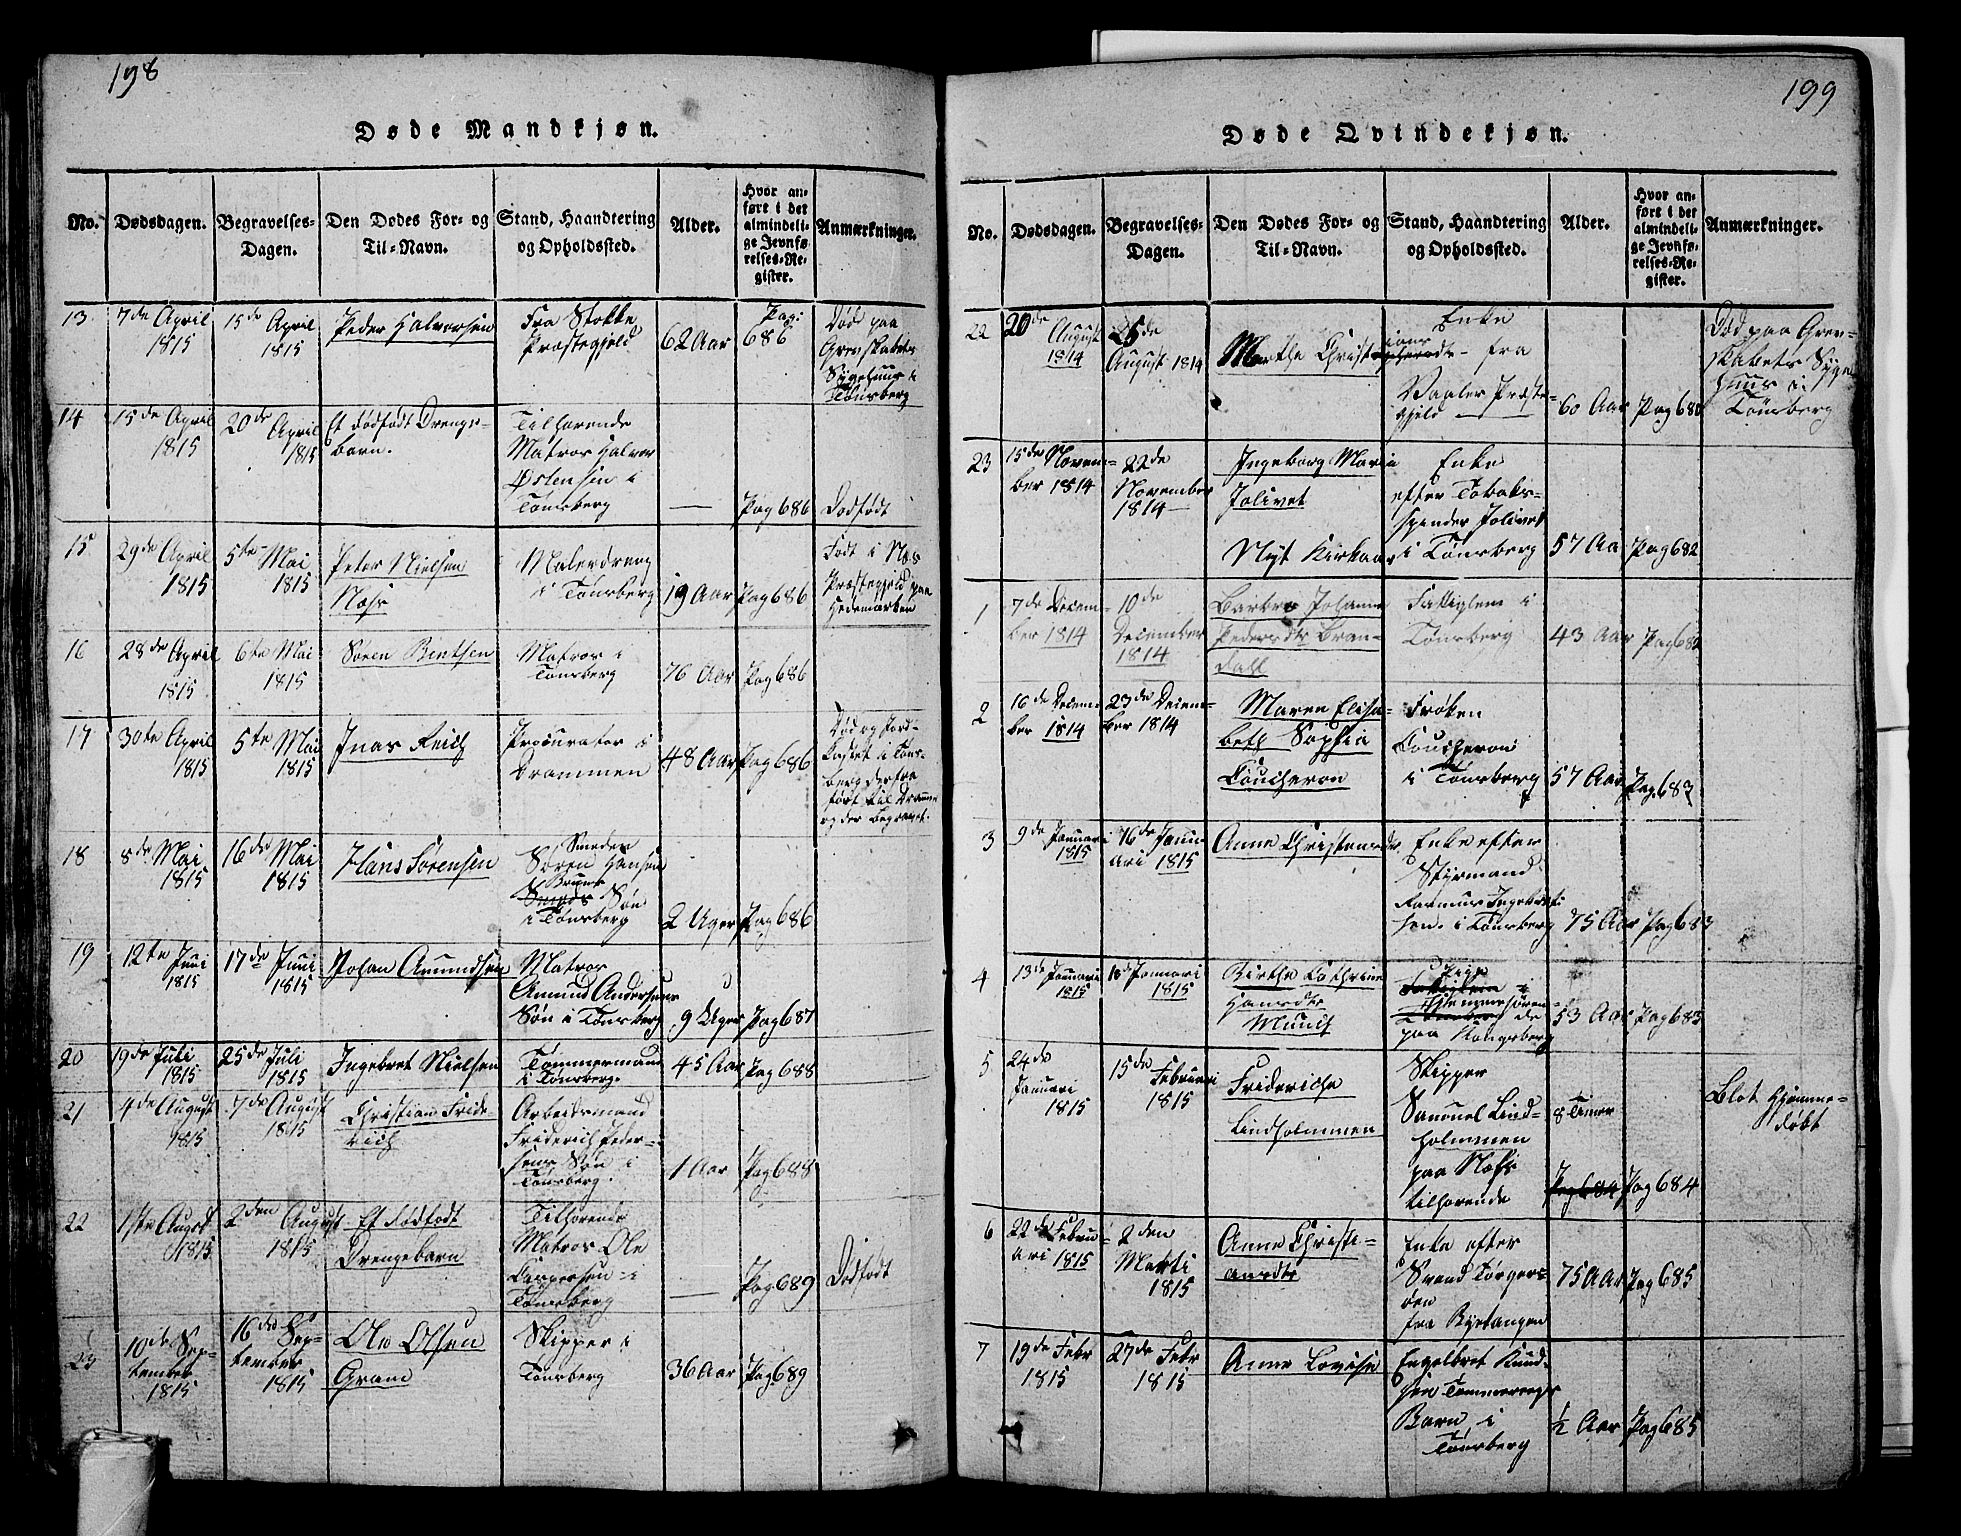 198
Døde Mandkjøn.
No.
Dødsdagen.
Begravelses-
Dagen.
Den Dødes For- og
Til-Navn.
Stand, Haandtering
og Opholdssted.
Alder.
Hvor an-
ført i det
almindeli-
ge Jevnfø-
relses-Re-
gister.
Anmærkninger.
13.
7de April
1815
15de April
1815
Peder Halvorsen
Fra Stokke
Præstegjeld
62 Aar
Pag:
686
Død paa
Grevskabets
Sygehuus i
Tønsberg
14
15de April
1815
20de April
1815
Et dødfødt Drenge-
barn.
Tilhørende
Matros Halvor
Østensen i
Tønsberg
—
Pag 686
Dødfødt
15
29de April
1815
5te Mai
1815
Peter Nielsen
Næss
Malerdreng
i Tønsberg
19 Aar
Pag 686
Født i Næs
Præstegjeld paa
Hedemarken
16
28de April
1815
6te Mai
1815
Søren Bentsen
Matros i
Tønsberg
76 Aar
Pag 686
17
30te April
1815
5te Mai
1815
Jnas Reich
Procurator i
Drammen
48 Aar
Pag 686
Død og Jord-
kastet i Tøns-
berg derfra
ført til Dramme
og der begravet.
18
8de Mai
1815
16de Mai
1815
Hans Sørensen
Smeder
Søren Hansen
Søn
i Tønsberg
2 Uger
Pag 686
19
12te Juni
1815
17de Juni
1815
Johan Amundsen
Matros
Amund Andersens
Søn i Tønsberg
9 Uger
Pag 687
20
19de Juli
1815
25de Juli
1815
Ingebret Nielsen
Tømmermand
i Tønsberg.
45 Aar
Pag 688
21
4de August
1815
7de August
1815
Christian Fride-
rich
Arbeidsmand
Friderich Peder-
sens Søn i
Tønsberg.
1 Aar
Pag 688
22
1ste August
1815
2den August
1815
Et dødfødt
Drengebarn
Tilhørende
Matros Ole
Caspersen i
Tønsberg
—
Pag 689
Dødfødt
23
10de Sep-
tember
1815
16de Sep-
tember
1815
Ole Olsen
Gram
Skipper i
Tønsberg
36 Aar
Pag 689
199
Døde Qvindekjøn.
No.
Dødsdagen.
Begravelses-
Dagen.
Den Dødes For- og
Til-Navn.
Stand, Haandtering
og Opholdssted.
Alder.
Hvor an-
ført i det
almindeli-
ge Jevnfø-
relses-Re-
gister.
Anmærkninger.
22
20de
August
1814
25de
August 1814
Marthe Christians
Enke
fra
Vaaler Præste-
gjeld
60 Aar
Pag 680
Død paa Grev-
skabets Syge
huus i
Tønsberg
23
15de Novem-
ber 1814
22de
November
1814
Ingeborg Maria
Jolivet
Nyt Kirkaar
Enke
efter Tobaks-
spinder Jolivet
i Tønsberg
57 Aa
Pag 682
1
7de Decem-
ber 1814
10de
December
1814
Barbra Johanne
Pedersdtr Bran-
dall
Fattiglem i
Tønsberg
43 Aar
Pag 682
2
16de Decem-
ber 1814
23de Decem-
ber 1814
Maren Elisa-
beth Sophia
Coucheron
Frøken
Coucheron
i Tønsberg
57 Aar
Pag. 683
3
9de Januari
1815
16de Janu-
ari 1815
Anne Christensdr
Enke efter
Styrmand
Rasmus Ingebret-
sen. i Tønsberg
75 Aar
Pag 683
4
13de Januari
1815
18de Januari
1815
Birthe Cathrine
Hansdtr
Munch
Pige
Hjemmehøren-
de
paa Kongsberg
53 Aar
Pag 683
5
24de
Januari
1815
15de
Februari
1815
Frideriche
Lindholmmen
Skipper
Samuel Lind-
holmmen
paa Næss
tilhørende
8 Timer
Pag 684
Pag 684
Blot Hjemme-
døbt
6
22de Febru-
ari 1815
2den
Marti
1815
Anne Christi-
ansdtr
Enke efter
Svend Torgers-
øen
fra Bystangen
75 Aar
Pag 685
7
19de Febr
1815
27de Febr
1815
Anne Lovise
Engelbret Knud-
sen Tømmermgs
Barn i
Tønsberg
½ Aar
Pag 685